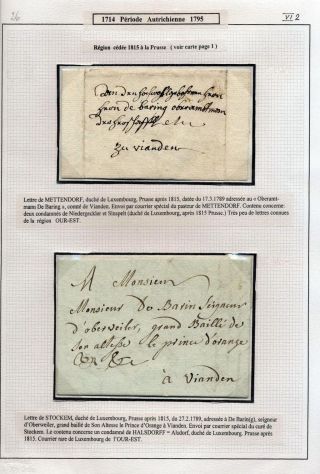 26
1714 Période Autrichienne 1795
VI 2
Région cédée 1815 à la Prusse ( voir carte page 1 )
zu vianden
Lettre de METTENDORF, duché de Luxembourg, Prusse après 1815, datée du 17.5.1789 adressée au « Oberamt-
mann De Baring », comté de Vianden. Envoi par courrier spécial du pasteur de METTENDORF. Contenu concerne
deux condamnés de Niedergeckler et Sinspelt (duché de Luxembourg, après 1815 Prusse.) Très peu de lettres connues
de la région OUR-EST.
A Monsieur
Monsieur De Barin Seigneur
d'oberweiler, grand Baillé de
Son altesse le prince d'orange
à Vianden
Lettre de STOCKEM, duché de Luxembourg, Prusse après 1815, du 27.2.1789, adressée à De Barin(g), seigneur
d'Oberweiler, grand baillé de Son Altesse le Prince d'Orange à Vianden. Envoi par courrier spécial du curé de
Stockem. Le contenu concerne un condamné de HALSDORFF = Alsdorf, duché de Luxembourg. Prusse après
1815. Courrier rare de Luxembourg de l'OUR-EST.